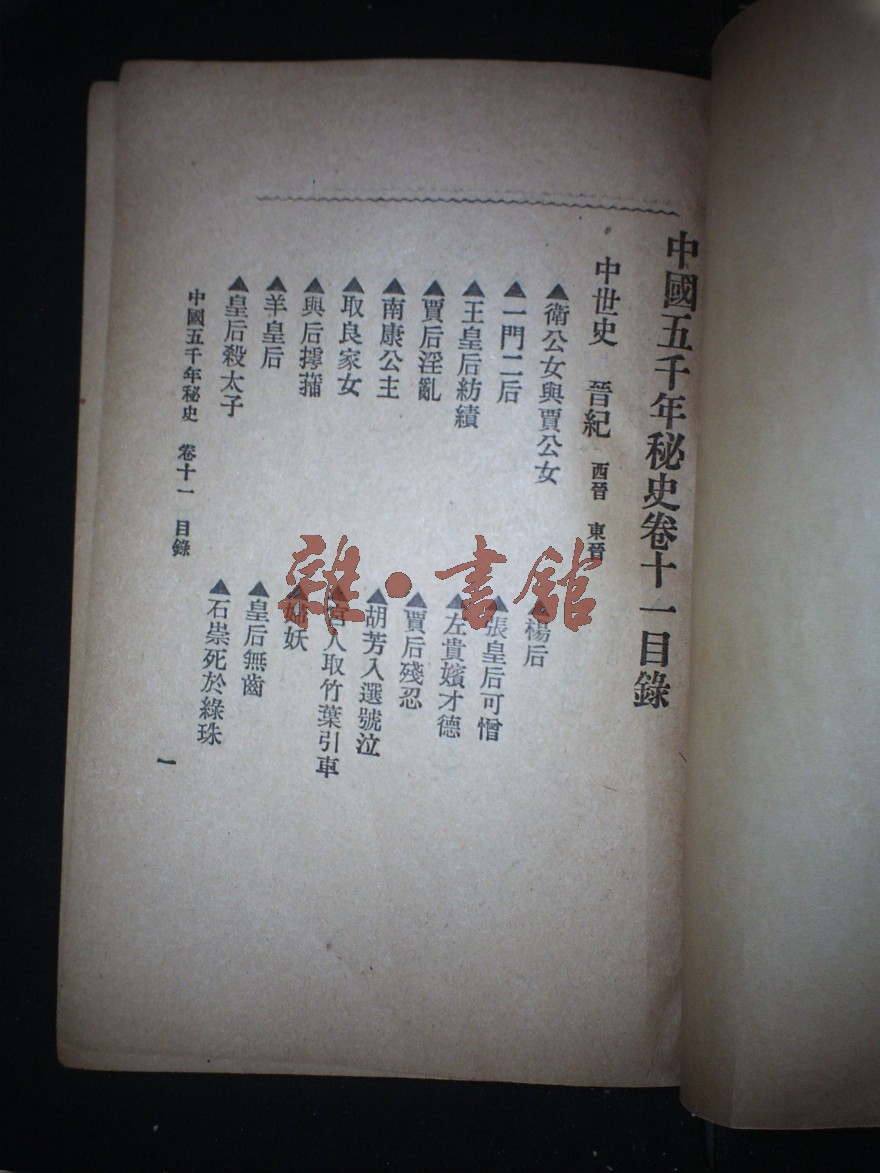 中國五千年秘史卷十一目錄
中世史 晉紀 西晉 東晉
▲衛公女與賈公女 ▲楊后
▲一門二后 ▲張皇后可憎
▲王皇后紡績 ▲左貴嬪才德
▲賈后淫亂 ▲賈后殘忍
▲南康公主 ▲胡芳入選號泣
▲取良家女 ▲宮人取竹葉引車
▲與后摴蒱 ▲婦妖
▲羊皇后 ▲皇后無齒
▲皇后殺太子 ▲石崇死於綠珠
中國五千年秘史 卷十一 目錄 一
雜·書館